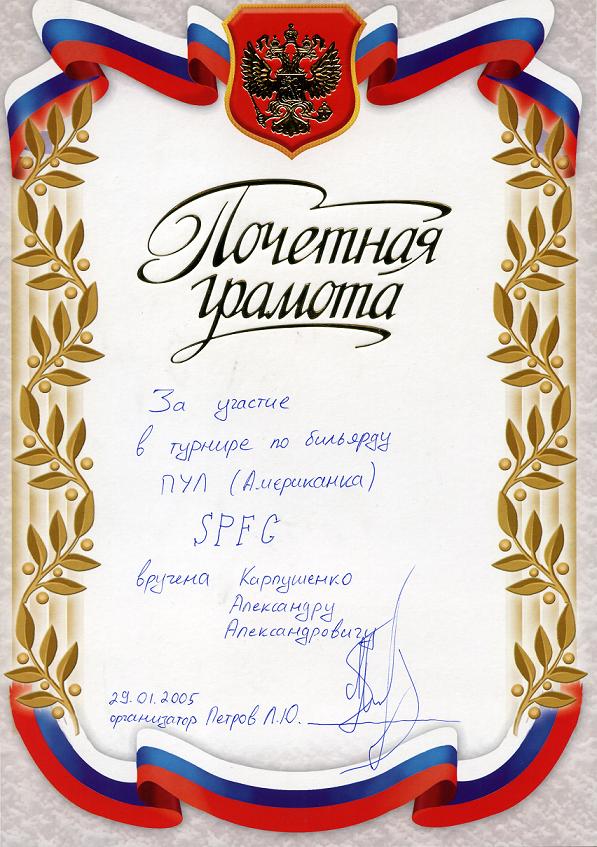 Почетная
грамота
За участие
в турнире по бильярду
ПУЛ (Американка)
SPFG
вручена Карпушенко
Александру
Александровичу
29.01.2005
организатор Петров Л.Ю.